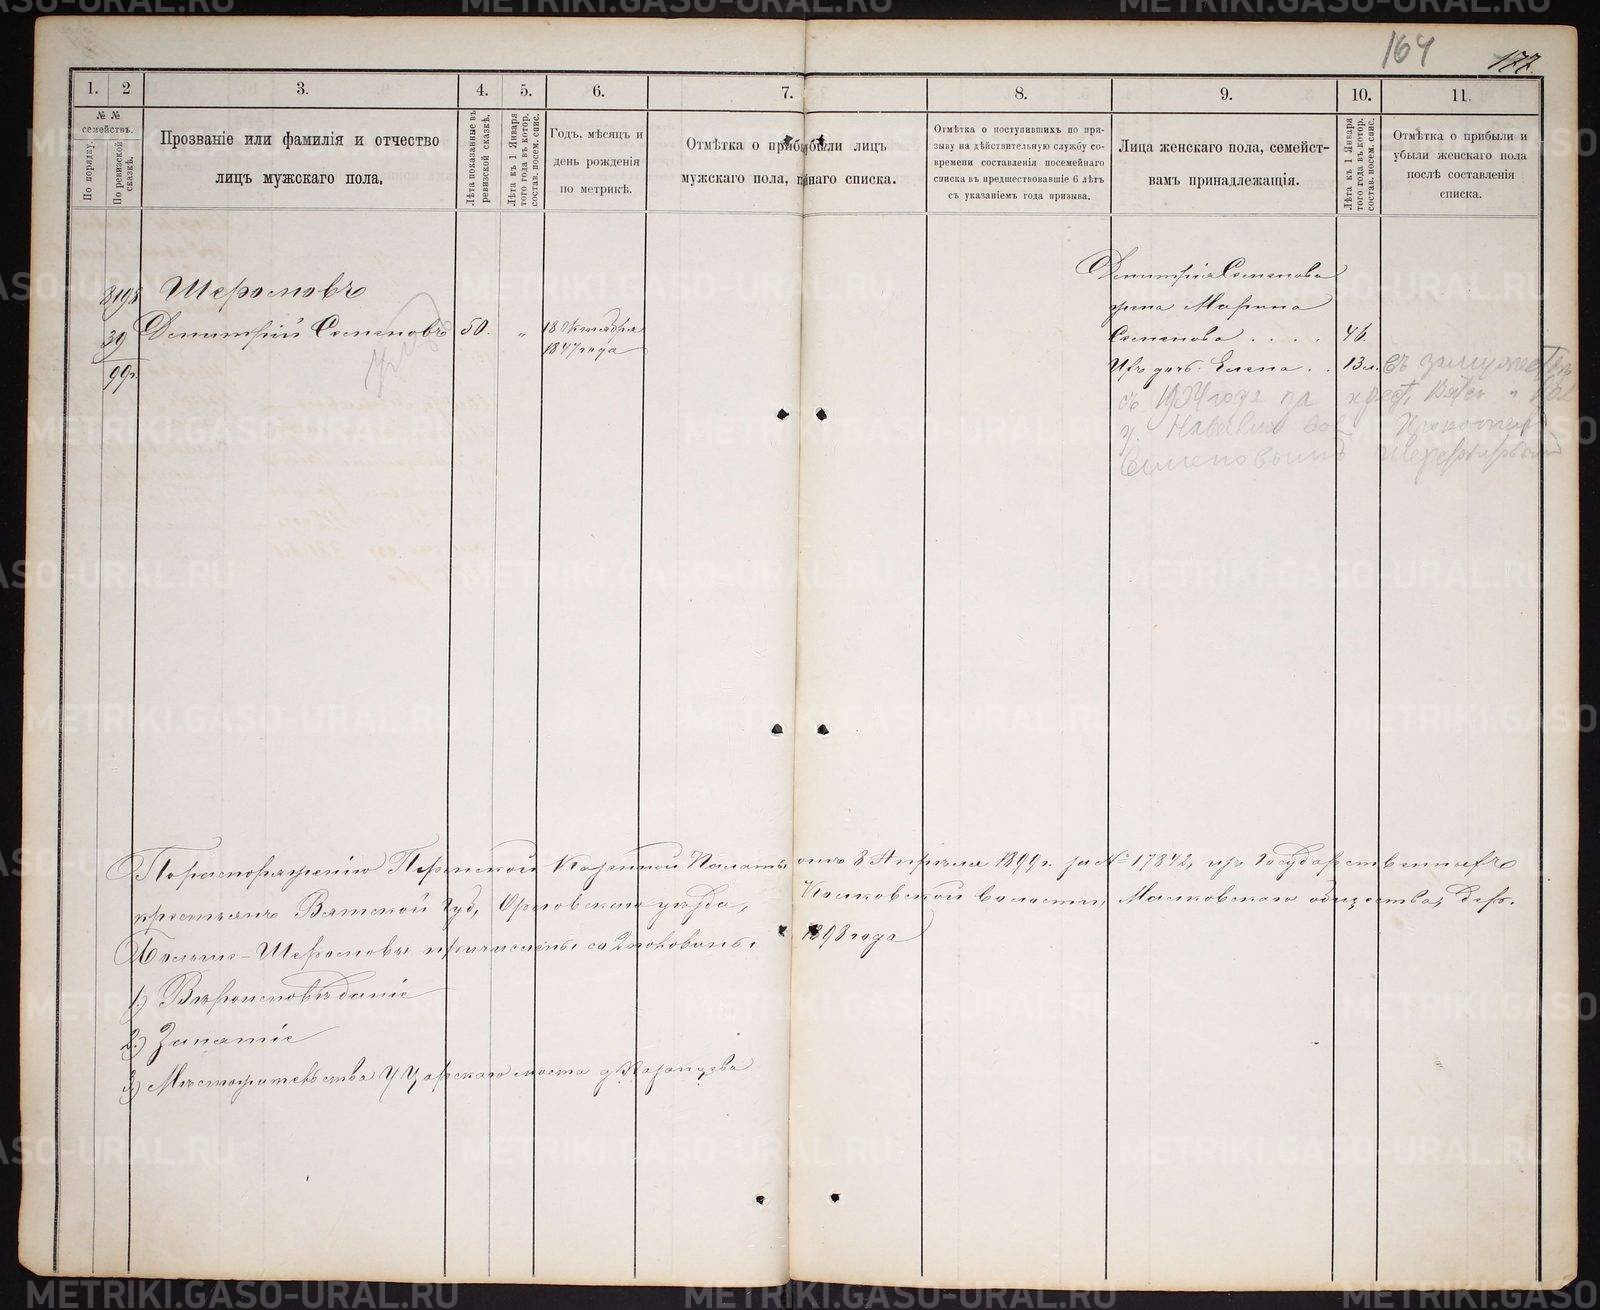 164
177.
1. 2 3. 4. 5. 6. 7. 8. 9. 10. 11.
№ № семействъ.
По порядку.
По ревизской сказкѣ.
Прозваніе или фамилія и отчество
лицъ мужскаго пола.
Лѣта показанные въ
ревизской сказкѣ.
Лѣта къ 1 Января
того года въ котор.
состав. посем. спис.
Годъ, мѣсяцъ и
день рожденія
по метрикѣ.
Отмѣтка о прибыли лицъ
мужскаго пола, наго списка.
Отмѣтка о поступившихъ по при-
зыву на дѣйствительную службу со-
времени составленія посемейнаго
списка въ предшествовавшіе 6 лѣтъ
съ указаніемъ года призыва.
Лица женскаго пола, семейст-
вамъ принадлежащія.
Лѣта къ 1 Января
того года въ котор.
состав. посем. спис.
Отмѣтка о прибыли и
убыли женскаго пола
послѣ составленія
списка.
8198 Шеромовъ
39 Димитрій Семеновъ 50. „ 18 Октября
99г. 1847 года
Димитрія Семенова
жена Марина
Семенова . . . . 46.
Ихъ дочь: Елена . . 13 л. Въ замужествѣ
съ года за крест. Вятск.
Семеновымъ
По распоряженію Пермской Казенной Палаты отъ 8 Апрѣля 1899 г. за № 17842, изъ Государственныхъ
крестьянъ Вятской Губ, Орловскаго уѣзда, волости, общества, дер.
Шеромовы причислены со 2 половины 1898 года
1.) Вѣроисповѣданіе
2.) Занятіе
3.) Мѣстожительства У Царскаго моста д.
METRIKI.GASO-URAL.RU